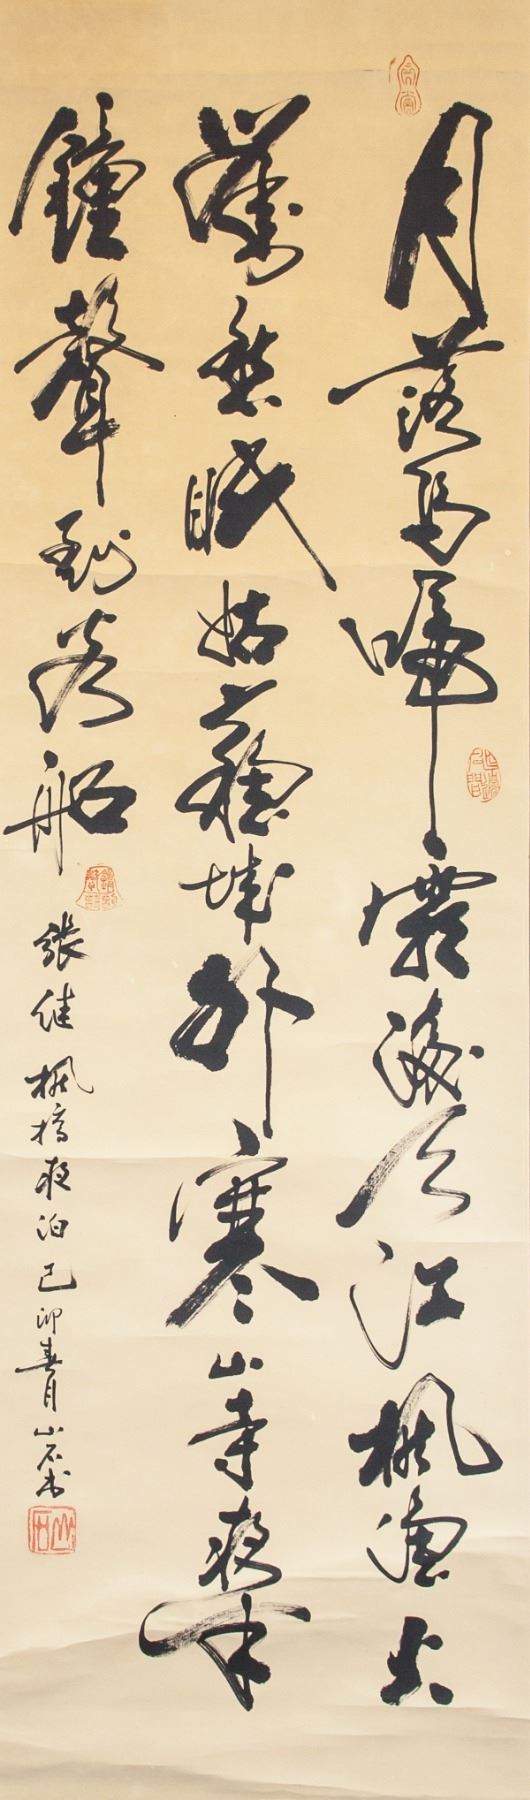 月落烏啼霜滿天江楓漁火
對愁眠姑蘇城外寒山寺夜半
鐘聲到客船
張継楓橋夜泊己卯春月山石書
山石